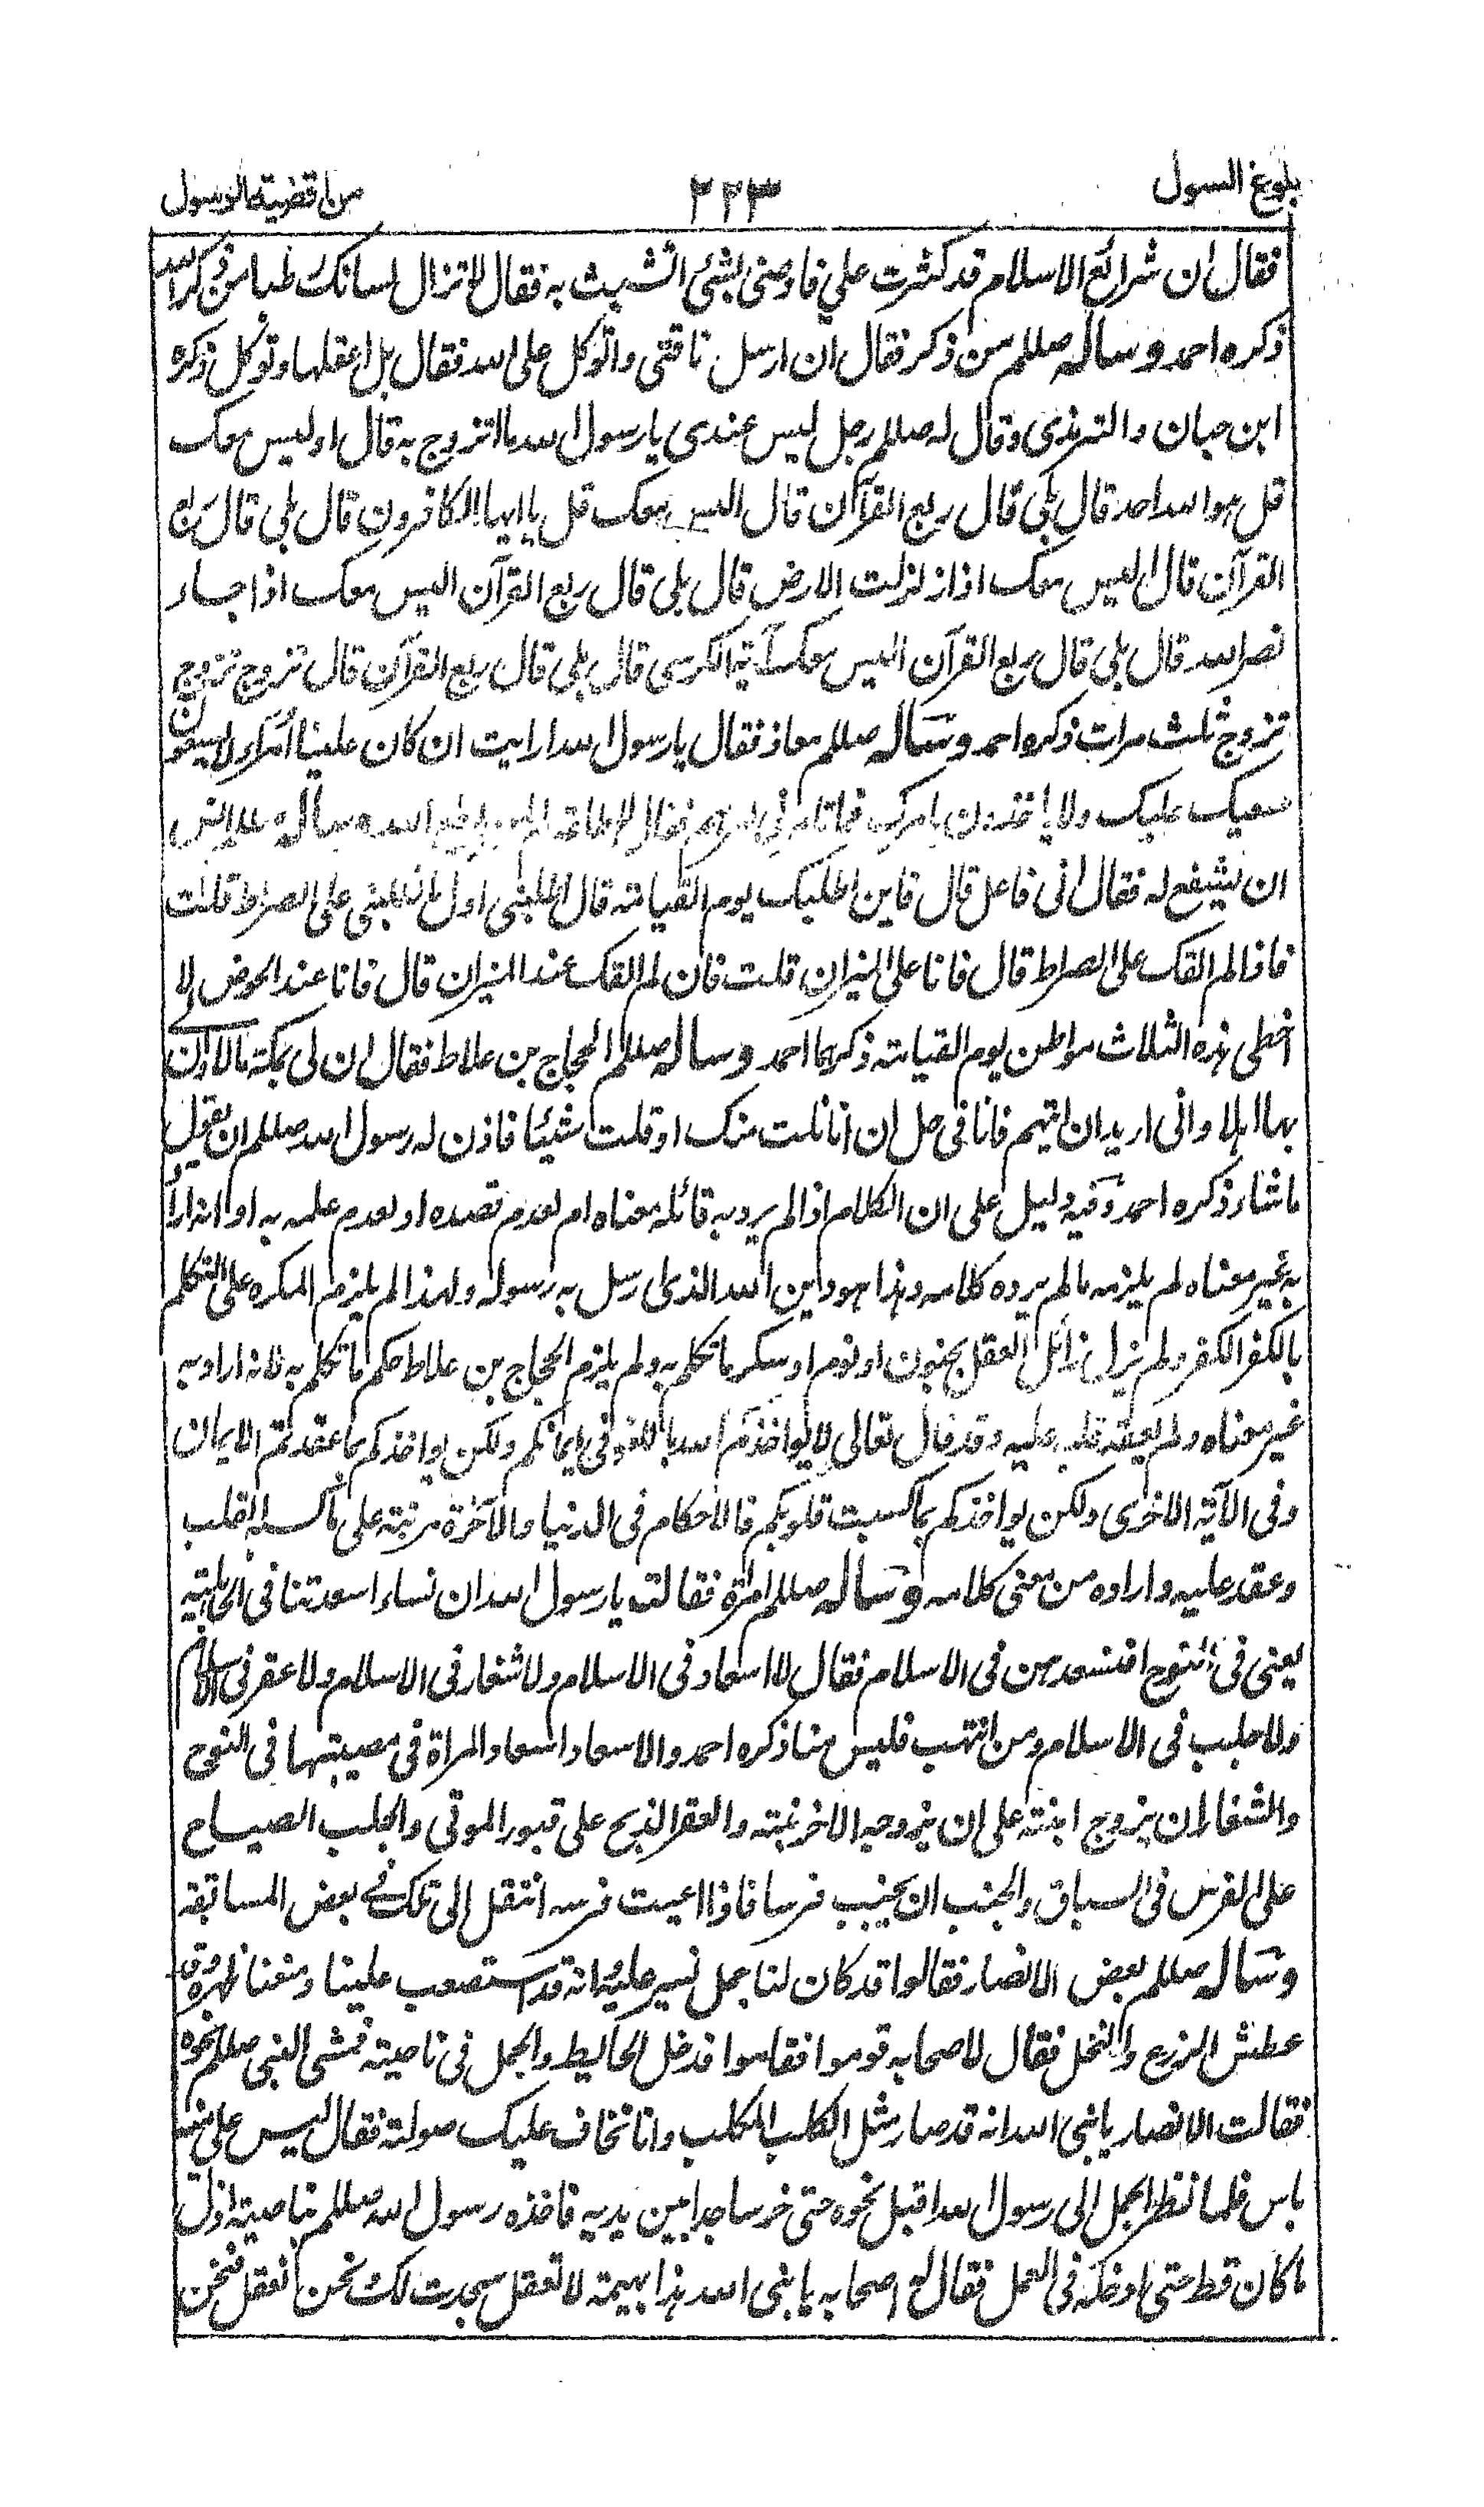 بلوغ السول
٢٢٣
من اقضية الرسول
فقال ان شرائع الاسلام قد كثرت علي فاوصنى بشئ اتشبث به فقال لا تزال لسانك رطبا من ذكر الله
ذكره احمد وساله صللم من ذكر فقال ان ارسل ناقتى واتوكل على الله فقال بل اعقلها وتوكل ذكره
ابن حبان والترمذى وقال له صللم رجل ليس عندى يا رسول الله ما اتزوج به قال اوليس معك
قل هو الله احد قال بلى قال ربع القرآن قال اليس معك قل يا ايها الكافرون قال بلى قال ربع
القرآن قال اليس معك اذا زلزلت الارض قال بلى قال ربع القرآن اليس معك اذا جاء
نصر الله قال بلى قال ربع القرآن اليس معك آية الكرسى قال بلى قال ربع القرآن قال تزوج تزوج
تزوج ثلث مرات ذكره احمد وساله صللم معاذ فقال يا رسول الله ارايت ان كان علينا امراء لا يستنون
بسنتك ولا ياخذون بامرك فما تامرنى فى امرهم فقال لا طاعة لمن لم يطع الله وساله انس
ان يشفع له فقال انى فاعل قال فاين اطلبك يوم القيامة قال اطلبنى اول ما تطلبنى على الصراط قلت
فاذا لم القك على الصراط قال فانا على الميزان قلت فان لم القك عند الميزان قال فانا عند الحوض لا
اخطى هذه الثلاث مواطن يوم القيامة ذكرهما احمد وساله صللم الحجاج بن علاط فقال ان لى بمكة مالا وان
بها اهلا وانى اريد ان اتيهم فانا فى حل ان انا نلت منك او قلت شيئا فاذن له رسول الله صللم ان يقول
ما شاء ذكره احمد وفيه دليل على ان الكلام اذا لم يرد به قائله معناه ام لعدم قصده او لعدم علمه به او انه اراد
به غير معناه لم يلزمه ما لم يرده كلامه وهذا هو دين الله الذى ارسل به رسوله ولهذا لم يلزم المكره على التكلم
بالكفر الكفر ولم يزل زائل العقل بجنون او نوم او سكر ما تكلم به ولم يلزم الحجاج بن علاط حكم ما تكلم به لانه اراد به
غير معناه ولم يعقد قلبه عليه وقد قال تعالى لا يواخذكم الله باللغو فى ايمانكم ولكن يواخذكم بما عقدتم الايمان
وفى الآية الاخرى ولكن يواخذكم بما كسبت قلوبكم فالاحكام فى الدنيا والآخرة مرتبة على ما كسبه القلب
وعقد عليه واراده من معنى كلامه وساله صللم امراة فقالت يا رسول الله ان نساء اسعدتنا فى الجاهلية
يعنى فى النوح افنسعدهن فى الاسلام فقال لا اسعاد فى الاسلام ولا شغار فى الاسلام ولا عقر فى الاسلام
ولا جلب فى الاسلام ومن انتهب فليس منا ذكره احمد والاسعاد اسعاد المراة فى مصيبتها فى النوح
والشغار ان يزوج ابنته على ان يزوجه الاخر بنته والعقر الذبح على قبور الموتى والجلب الصياح
على الفرس فى السباق والجنب ان يجنب فرسا فاذا اعيت فرسه انتقل الى تلك فى بعض المسابقة
وساله صللم بعض الانصار فقالوا قد كان لنا جمل نسير عليه وانه قد استصعب علينا ومنعنا ظهره وقد
عطش الزرع والنخل فقال لاصحابه قوموا فقاموا فدخل الحايط والجمل فى ناحيته فمشى النبى صللم نحوه
فقالت الانصار يا نبى الله انه قد صار مثل الكلب الكلب وانا نخاف عليك صولته فقال ليس على منه
باس فلما نظر الجمل الى رسول الله اقبل نحوه حتى خر ساجدا بين يديه فاخذه رسول الله صللم بناصيته اذل
ما كان قط حتى ادخله فى العمل فقال له اصحابه يا نبى الله هذا بهيمة لا تعقل سجدت لك نحن نعقل فنحن